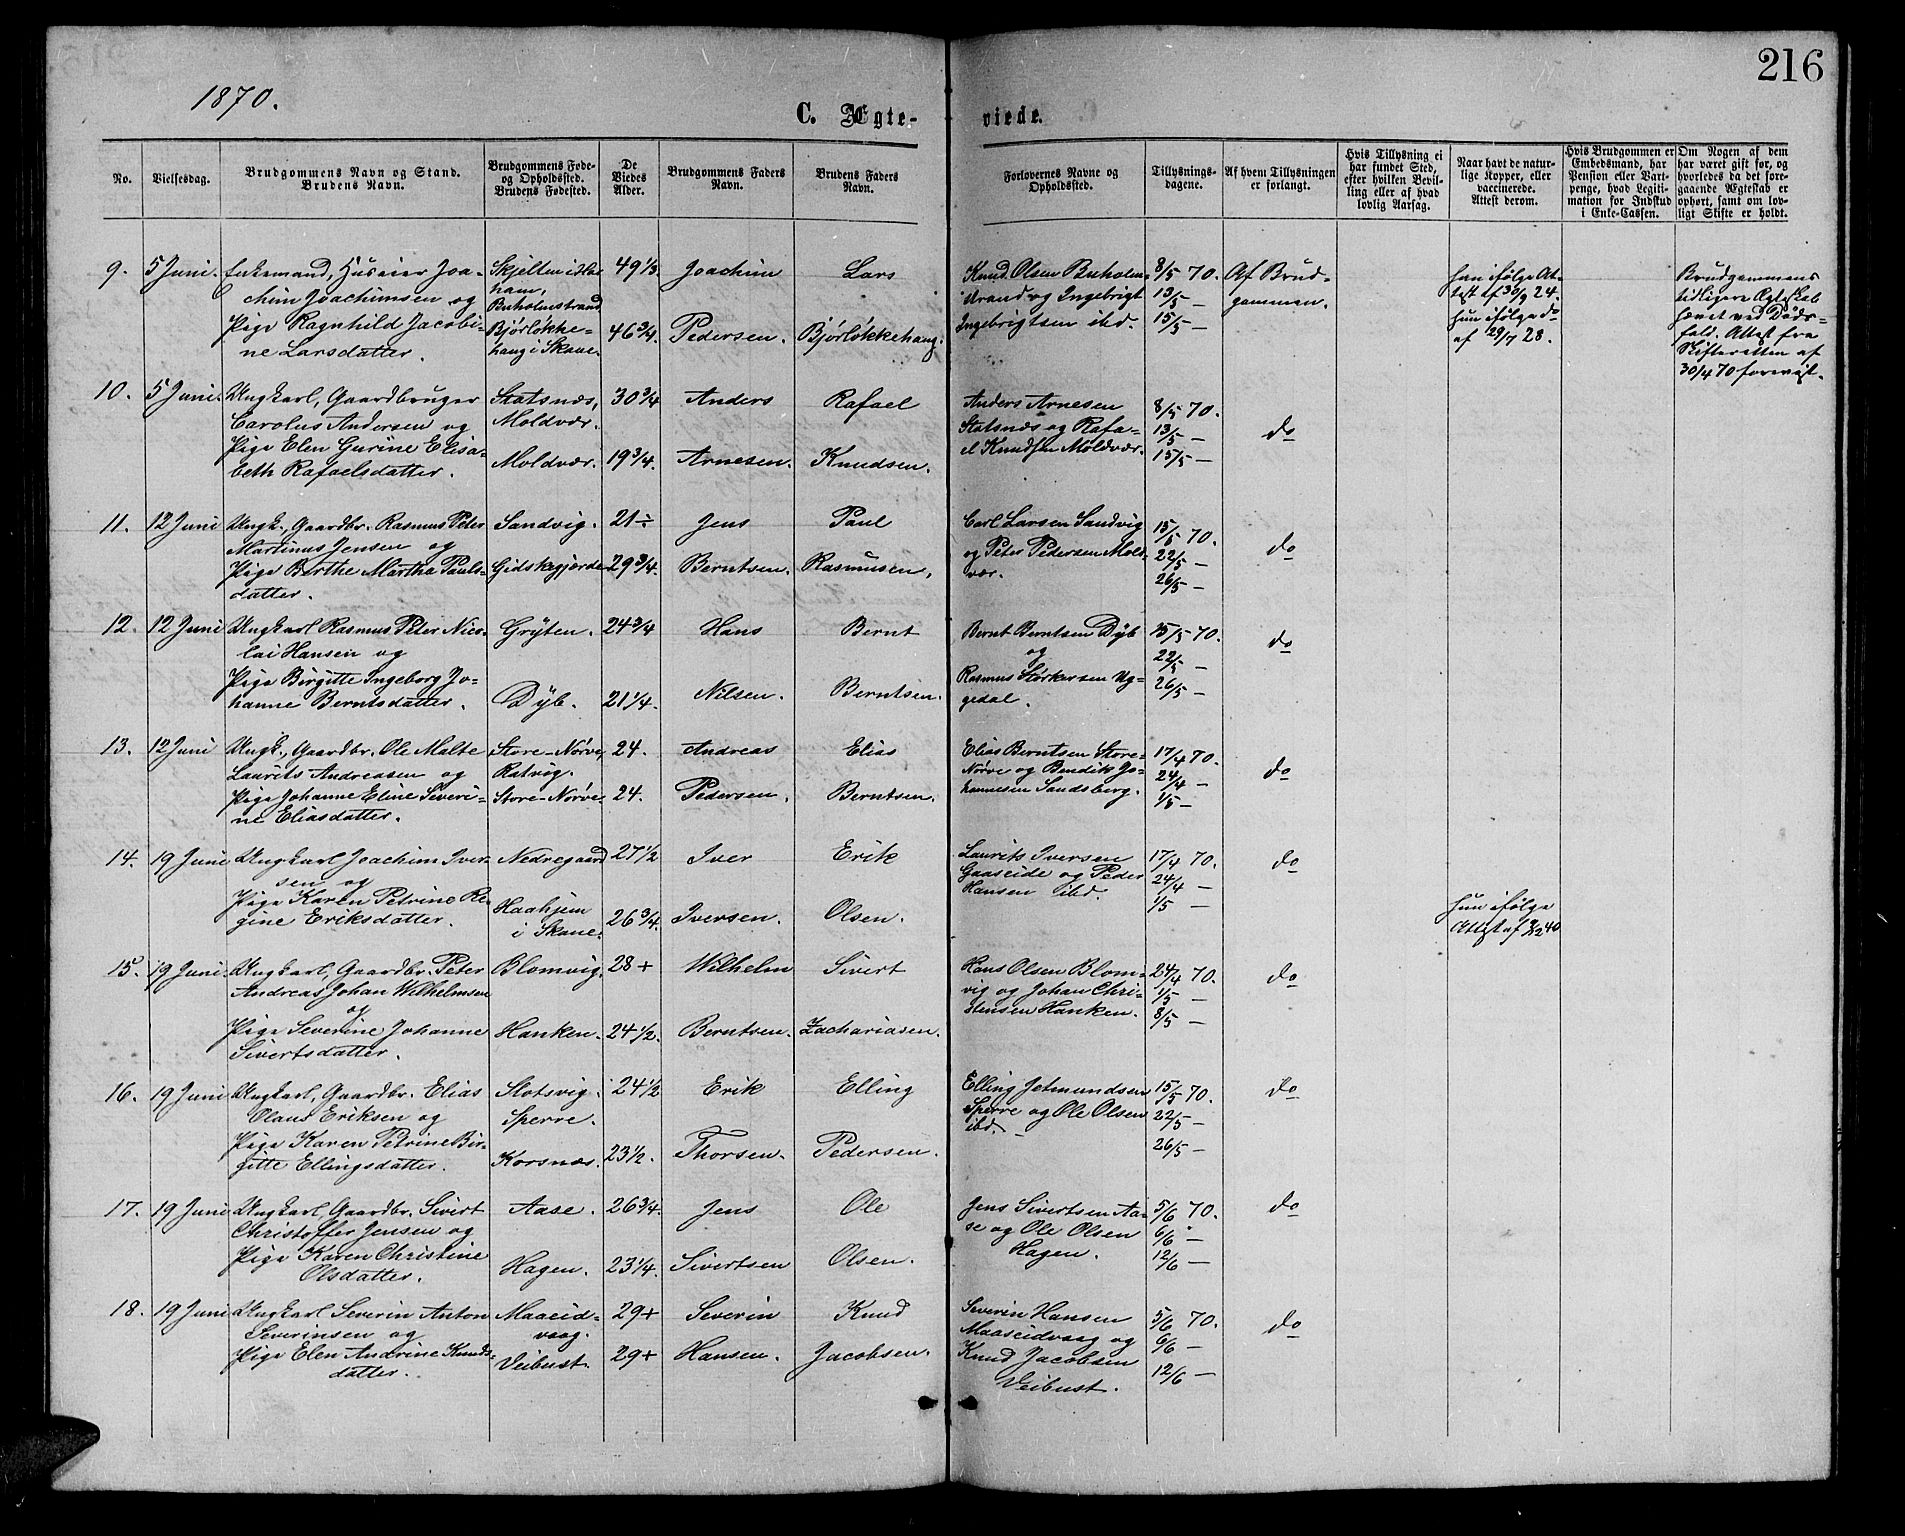 216
1870.
C. Ægte-
viede.
No.
Vielsesdag.
Brudgommens Navn og Stand.
Brudens Navn.
Brudgommens Føde-
og Opholdssted.
Brudens Fødested.
De
Viedes
Alder.
Brudgommens Faders
Navn.
Brudens Faders
Navn.
Forlovernes Navne og
Opholdssted.
Tillysnings-
dagene.
Af hvem Tillysningen
er forlangt.
Hvis Tillysning ei
har fundet Sted,
efter hvilken Bevil-
ling eller af hvad
lovlig Aarsag.
Naar havt de natur-
lige Kopper, eller
vaccinerede.
Attest derom.
Hvis Brudgommen er
Embedsmand, har
Pension eller Vart-
penge, hvad Legiti-
mation for Indskud
i Enke-Cassen.
Om Nogen af dem
har været gift før, og
hvorledes da det fore-
gaaende Ægteskab er
ophørt, samt om lov-
ligt Skifte er holdt.
9.
5 Juni.
Enkemand, Huseier Joa-
chim Joachimsen og
Pige Ragnhild Jacobi-
ne Larsdatter.
Skjelten i
ham,
Buholmstrand
Bjørløkke-
haug i Skaue.
49 1/3
46 3/4.
Joachim
Pedersen.
Lars
Bjørløkkehaug.
Knud Olsen Buholm-
strand og Ingebrigt
Ingebrigtsen ibd.
8/5 70.
13/5 —
15/5 —
Af Brud-
gommen.
han ifølge At-
test af 30/9 24.
hun ifølge do
af 29/7 28.
Brudgommens
tidligere Ægteskab
hævet ved Døds-
fald. Attest fra
Skifteretten af
30/4 70 forevist.
10.
5 Juni.
Ungkarl, Gaardbruger
Carolus Andersen og
Pige Elen Gurine Elisa-
beth Rafaelsdatter.
Statsnæs,
Moldvær.
Moldvær.
30 3/4
19 3/4.
Anders
Arnesen.
Rafael
Knudsen.
Anders Arnesen
Statsnæs og Rafa-
el Knudsen Moldvær.
8/5 70.
13/5 —
15/5 —
do
11.
12 Juni
Ungk., Gaardbr. Rasmus Peter
Martinus Jensen og
Pige Berthe Martha Pauls-
datter.
Sandvig.
Gidskegjerde
21 ÷
29 3/4.
Jens
Berntsen.
Paul
Rasmusen.
Carl Larsen Sandvig
og Peter Pedersen Mold-
vær.
15/5 70.
22/5 —
26/5 —
do
12.
12 Juni
Ungkarl Rasmus Peter Nico-
lai Hansen og
Pige Birgitte Ingeborg Jo-
hanne Berntsdatter.
Grÿten.
Dÿb.
24 3/4
21 1/4.
Hans
Nilsen.
Bernt
Berntsen.
Bernt Berntsen Dÿb
og
Rasmus Størkersen Ug-
gedal.
15/5 70.
22/5 —
26/5 —
do
13.
12 Juni
Ungk., Gaardbr. Ole Malte
Laurits Andreasen og
Pige Johanne Eline Severi-
ne Eliasdatter.
Store-Nørve,
Ratvig.
Store-Nørve.
24.
24.
Andreas
Pedersen.
Elias
Berntsen.
Elias Berntsen Store-
Nørve og Bendik Jo-
hannesen Sandsberg.
17/4 70.
24/4 —
1/5 —
do
14.
19 Juni
Ungkarl Joachim Iver-
sen og
Pige Karen Petrine Re-
gine Eriksdatter.
Nedregaard
Haahjem
i Skaue.
27 1/2
26 3/4.
Iver
Iversen.
Erik
Olsen.
Laurits Iversen
Gaaseide og Peder
Hansen ibd.
17/4 70.
24/4 —
1/5 —
do
hun ifølge
Attest af
15.
19 Juni.
Ungkarl, Gaardbr. Peter
Andreas Johan Wilhelmsen
og
Pige Severine Johanne
Sivertsdatter.
Blomvig.
Hanken.
28 +
24 1/2.
Wilhelm
Berntsen.
Sivert
Zachariasen.
Hans Olsen Blom-
vig og Johan Chri-
stensen Hanken.
24/4 70.
1/5 —
8/5 —
do
16.
19 Juni
Ungkarl, Gaardbr. Elias
Olaus Eriksen og
Pige Karen Petrine Bir-
gitte Ellingsdatter.
Slotsvig.
Sperre.
Korsnæs.
24 1/2
23 1/2.
Erik
Thorsen.
Elling
Pedersen.
Elling Jetmundsen
Sperre og Ole Olsen
ibd.
15/5 70.
22/5 —
26/5 —
do
17.
19 Juni
Ungkarl, Gaardbr. Sivert
Christoffer Jensen og
Pige Karen Christine
Olsdatter.
Aase.
Hagen.
26 3/4.
23 1/4.
Jens
Sivertsen
Ole
Olsen.
Jens Sivertsen Aa-
se og Ole Olsen
Hagen.
5/6 70.
6/6 -
12/6 —
do
18.
19 Juni
Ungkarl Severin Anton
Severinsen og
Pige Elen Andrine Knuds-
datter.
Maaseid-
vaag.
Veibust.
29 +
29 +
Severin
Hansen.
Knud
Jacobsen.
Severin Hansen
Maaseidvaag og
Knud Jacobsen
Veibust.
5/6 70.
6/6 —
12/6 —
do